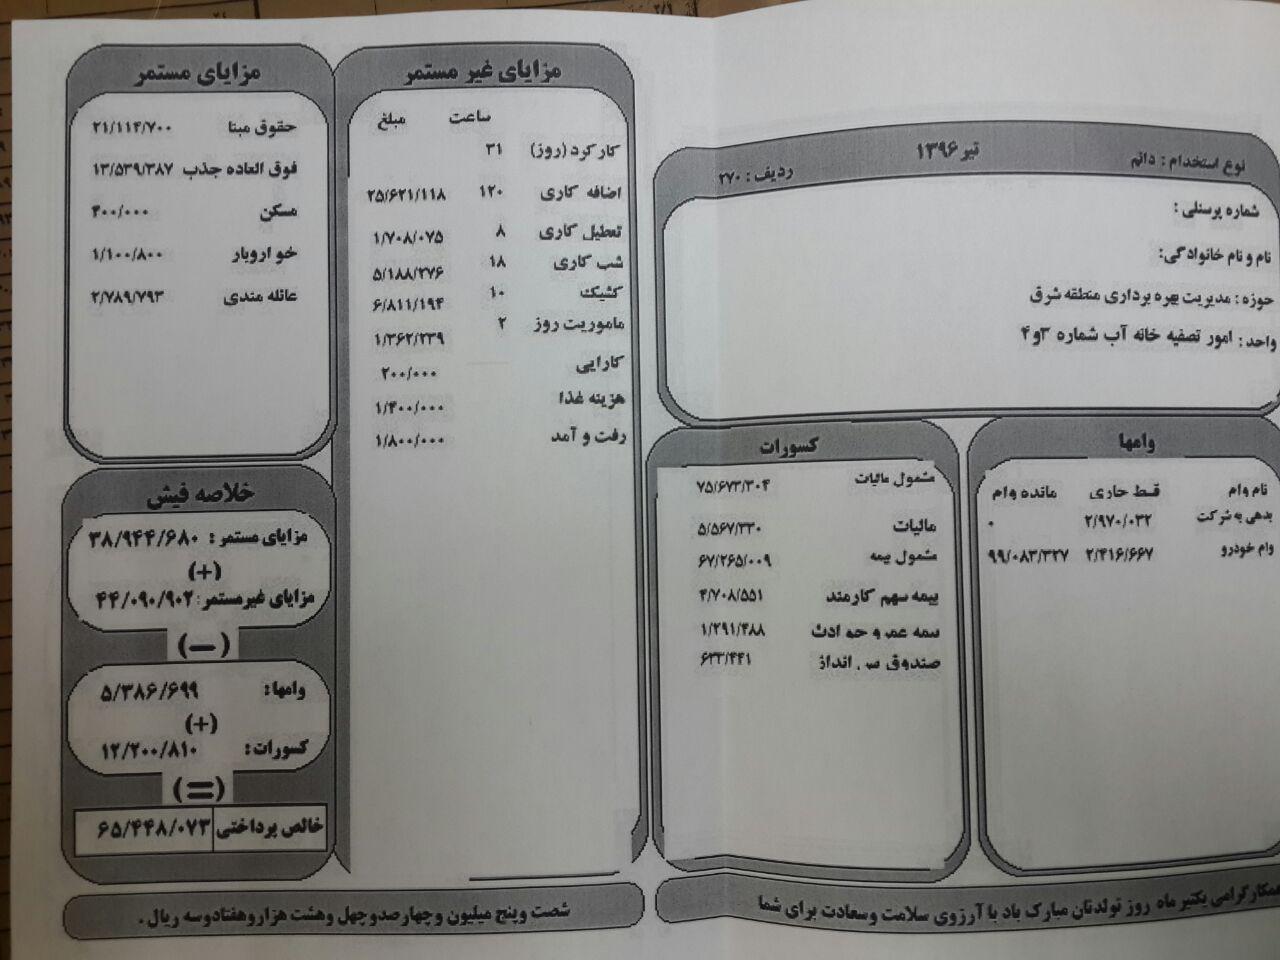 نوع استخدام : دائم    تیر ۱۳۹۶    ردیف : ۲۷۰
شماره پرسنلی :
نام و نام خانوادگی:
حوزه : مدیریت بهره برداری منطقه شرق
واحد : امور تصفیه خانه آب شماره ۳و۴
وامها
نام وام    قسط جاری    مانده وام
بدهی به شرکت    ۲/۹۷۰/۰۳۲    ۰
وام خودرو    ۲/۴۱۶/۶۶۷    ۹۹/۰۸۳/۳۲۷
کسورات
مشمول مالیات    ۷۵/۶۷۳/۳۰۴
مالیات    ۵/۵۶۷/۳۳۰
مشمول بیمه    ۶۷/۲۶۵/۰۰۹
بیمه سهم کارمند    ۴/۷۰۸/۵۵۱
بیمه عمر و حوادث    ۱/۲۹۱/۴۸۸
صندوق پس انداز    ۶۳۳/۴۴۱
مزایای غیر مستمر
ساعت    مبلغ
کارکرد (روز)    ۳۱
اضافه کاری    ۱۲۰    ۲۵/۶۲۱/۱۱۸
تعطیل کاری    ۸    ۱/۷۰۸/۰۷۵
شب کاری    ۱۸    ۵/۱۸۸/۲۷۶
کشیک    ۱۰    ۶/۸۱۱/۱۹۴
ماموریت روز    ۲    ۱/۳۶۲/۲۳۹
کارایی    ۲۰۰/۰۰۰
هزینه غذا    ۱/۴۰۰/۰۰۰
رفت و آمد    ۱/۸۰۰/۰۰۰
مزایای مستمر
حقوق مبنا    ۲۱/۱۱۴/۷۰۰
فوق العاده جذب    ۱۳/۵۳۹/۳۸۷
مسکن    ۴۰۰/۰۰۰
خو اروبار    ۱/۱۰۰/۸۰۰
عائله مندی    ۲/۷۸۹/۷۹۳
خلاصه فیش
مزایای مستمر :    ۳۸/۹۴۴/۶۸۰
(+)
مزایای غیرمستمر:    ۴۴/۰۹۰/۹۰۲
(—)
وامها:    ۵/۳۸۶/۶۹۹
(+)
کسورات :    ۱۲/۲۰۰/۸۱۰
(=)
خالص پرداختی    ۶۵/۴۴۸/۰۷۳
همکارگرامی یکتیر ماه روز تولدتان مبارک باد با آرزوی سلامت وسعادت برای شما
شصت وپنج میلیون وچهارصدوچهل وهشت هزاروهفتادوسه ریال .